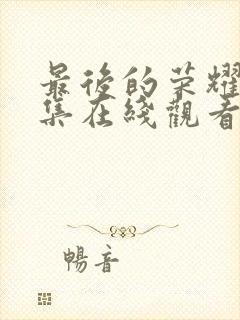 最後的荣耀
集在綫觀看
暢音